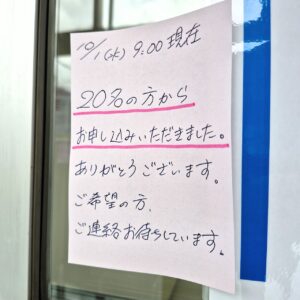 10/1(水) 9:00現在
20名の方から
お申し込みいただきました。
ありがとうございます。
ご希望の方、
ご連絡お待ちしています。